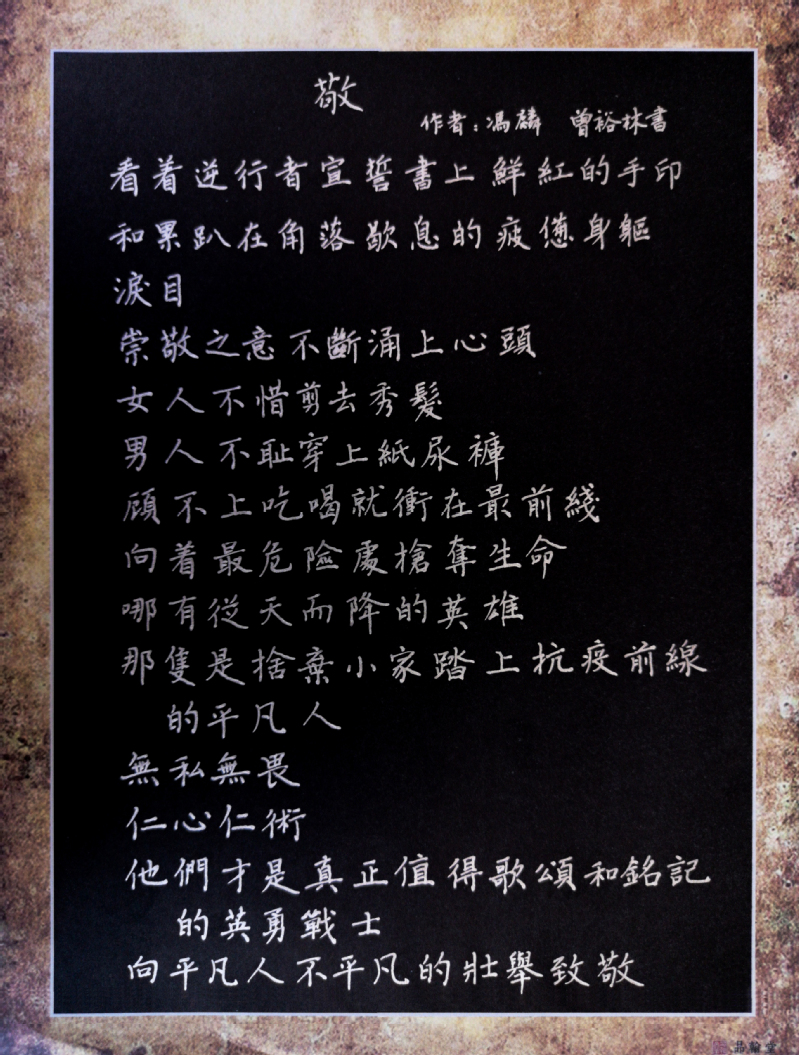 敬
作者：馮麟 曾裕林書
看着逆行者宣誓書上鮮紅的手印
和累趴在角落歇息的疲憊身軀
淚目
崇敬之意不斷涌上心頭
女人不惜剪去秀髮
男人不耻穿上紙尿褲
顧不上吃喝就衝在最前綫
向着最危險處搶奪生命
哪有從天而降的英雄
那隻是捨棄小家踏上抗疫前線
的平凡人
無私無畏
仁心仁術
他們才是真正值得歌頌和銘記
的英勇戰士
向平凡人不平凡的壯舉致敬